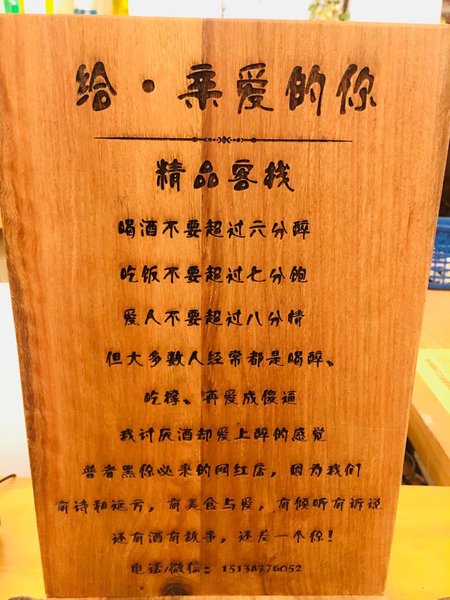 给·亲爱的你
精品客栈
喝酒不要超过六分醉
吃饭不要超过七分饱
爱人不要超过八分情
但大多数人经常都是喝醉、
吃撑、再爱成傻逼
我讨厌酒却爱上醉的感觉
普者黑你必来的网红店，因为我们
有诗和远方，有美食与爱，有倾听有诉说
还有酒有故事，还差一个你！
电话/微信：15138776052